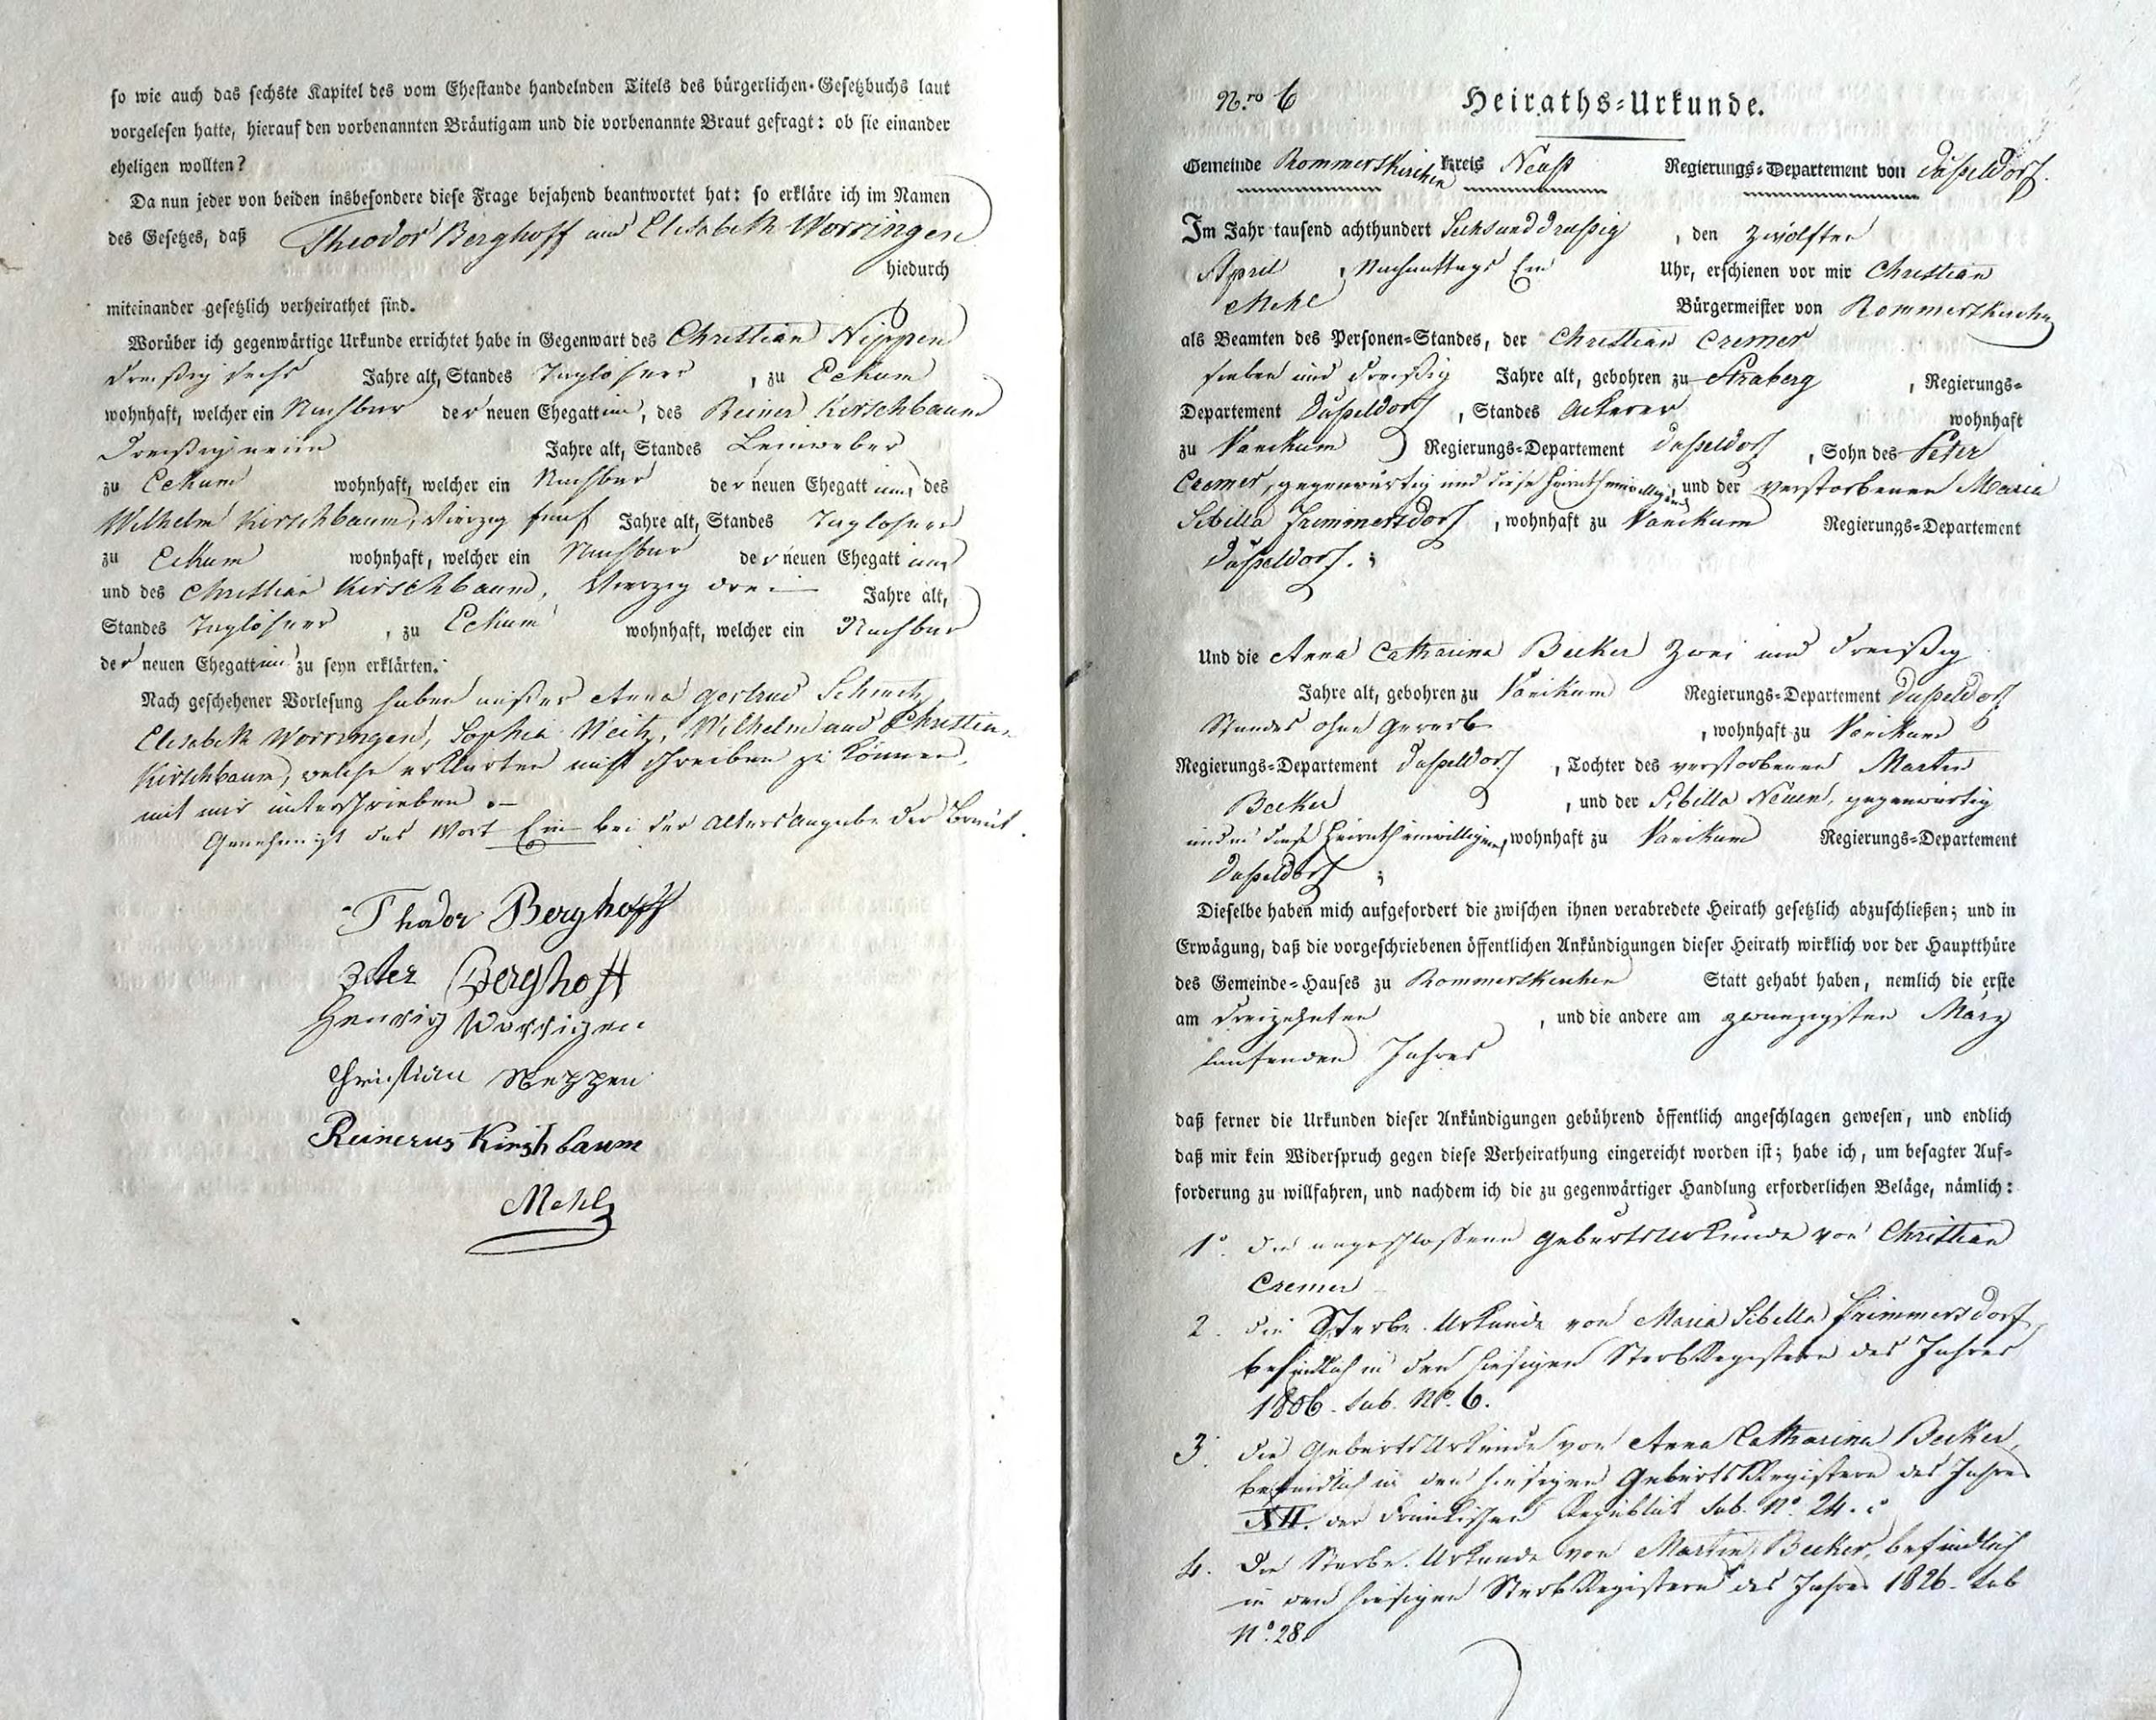 so wie auch das sechste Kapitel des vom Ehestande handelnden Titels des bürgerlichen-Gesetzbuchs laut
vorgelesen hatte, hierauf den vorbenannten Bräutigam und die vorbenannte Braut gefragt: ob sie einander
eheligen wollten?
Da nun jeder von beiden insbesondere diese Frage bejahend beantwortet hat: so erkläre ich im Namen
des Gesetzes, daß Theodor Berghoff und Elisabeth Worringen
hiedurch
miteinander gesetzlich verheirathet sind.
Worüber ich gegenwärtige Urkunde errichtet habe in Gegenwart des Christian Nippen
dreißig sechs Jahre alt, Standes Taglöhner, zu Eckum
wohnhaft, welcher ein Nachbar der neuen Ehegattinn, des Reiner Kirschbaum
dreißig neun Jahre alt, Standes Leinweber
zu Eckum wohnhaft, welcher ein Nachbar der neuen Ehegattinn, des
Wilhelm Kirschbaum, vierzig fünf Jahre alt, Standes Taglöhner
zu Eckum wohnhaft, welcher ein Nachbar der neuen Ehegattinn
und des Christian Kirschbaum, vierzig drei Jahre alt,
Standes Taglöhner, zu Eckum wohnhaft, welcher ein Nachbar
der neuen Ehegattinn zu seyn erklärten.
Nach geschehener Vorlesung haben außer Anna Gertrud Schmitz,
Elisabeth Worringen, Sophia Weitz, Wilhelm und Christian
Kirschbaum, welche erklärten nicht schreiben zu können,
mit mir unterschrieben.
Genehmigt das Wort Ein bei der Altersangabe der Braut.
Thador Berghoff
Peter Berghoff
Henrig Worrigen
Christian Neppen
Reinerus Kirshbaum
Mehl
N.ro 6 Heiraths-Urkunde.
Gemeinde Rommerskirchen Kreis Neuß Regierungs-Departement von Dußeldorf.
Im Jahr tausend achthundert Sechsunddreißig, den zwölften
April, Nachmittags Ein Uhr, erschienen vor mir Christian
Mehl Bürgermeister von Rommerskirchen
als Beamten des Personen-Standes, der Christian Cremer
sieben und dreißig Jahre alt, gebohren zu Straberg, Regierungs-
Departement Dußeldorf, Standes Ackerer wohnhaft
zu Vanikum Regierungs-Departement Dußeldorf, Sohn des Peter
Cremer, gegenwärtig und diese Heirath einwilligend, und der verstorbenen Maria
Sibilla Frimmersdorf, wohnhaft zu Vanikum Regierungs-Departement
Dußeldorf.;
Und die Anna Catharina Becker zwei und dreißig
Jahre alt, gebohren zu Vanikum Regierungs-Departement Dußeldorf
Standes ohne Gewerb, wohnhaft zu Vanikum
Regierungs-Departement Dußeldorf, Tochter des verstorbenen Martin
Becker, und der Sibilla Neuen, gegenwärtig
und in diese Heirath einwilligend, wohnhaft zu Vanikum Regierungs-Departement
Dußeldorf;
Dieselbe haben mich aufgefordert die zwischen ihnen verabredete Heirath gesetzlich abzuschließen; und in
Erwägung, daß die vorgeschriebenen öffentlichen Ankündigungen dieser Heirath wirklich vor der Hauptthüre
des Gemeinde-Hauses zu Rommerskirchen Statt gehabt haben, nemlich die erste
am dreizehnten, und die andere am zwanzigsten März
laufenden Jahres
daß ferner die Urkunden dieser Ankündigungen gebührend öffentlich angeschlagen gewesen, und endlich
daß mir kein Widerspruch gegen diese Verheirathung eingereicht worden ist; habe ich, um besagter Auf-
forderung zu willfahren, und nachdem ich die zu gegenwärtiger Handlung erforderlichen Beläge, nämlich:
1º. die angeschloßene Geburtsurkunde von Christian
Cremer
2. die Sterbe-Urkunde von Maria Sibilla Frimmersdorf,
befindlich in den hiesigen Sterb Registern des Jahres
1806. sub. Nº. 6.
3. die Geburts Urkunde von Anna Catharina Becker,
befindlich in den hiesigen Geburts Registern des Jahres
XII. der Fränkischen Republik sub. Nº. 24.
4. Die Sterbe-Urkunde von Martin Becker, befindlich
in den hiesigen Sterb Registern des Jahres 1826. sub
Nº. 28.